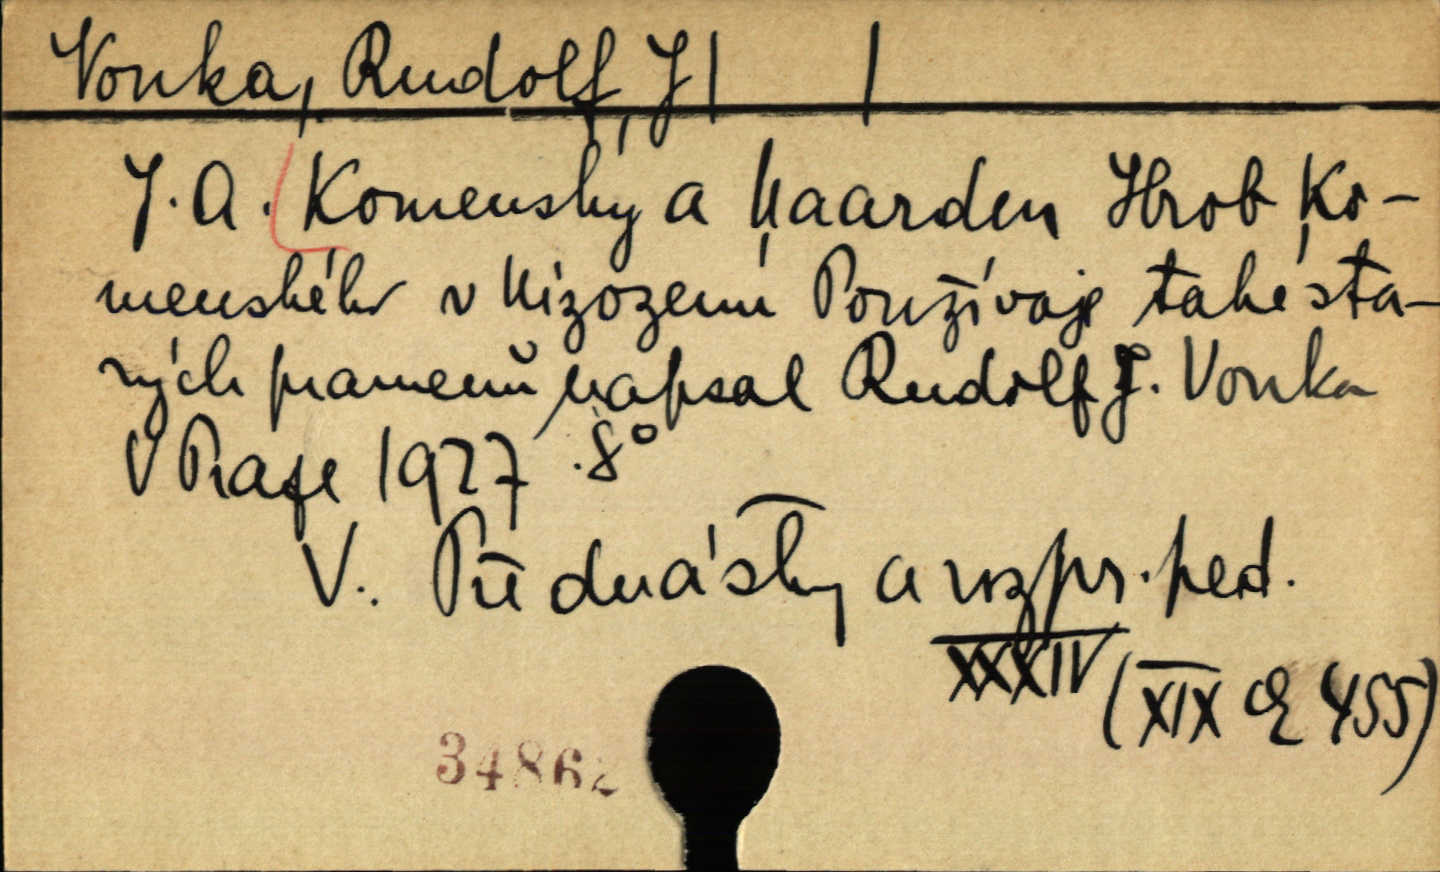 Vonka, Rudolf, J|
J. A. Komenský a Naarden Hrob Ko-
menského v Nizozemí Používaje také sta-
rých pramenů napsal Rudolf J. Vonka
V Praze 1927 .8°
V.. Přednášky a rozpr. ped.
XXXIV (XIX G 455)
34862